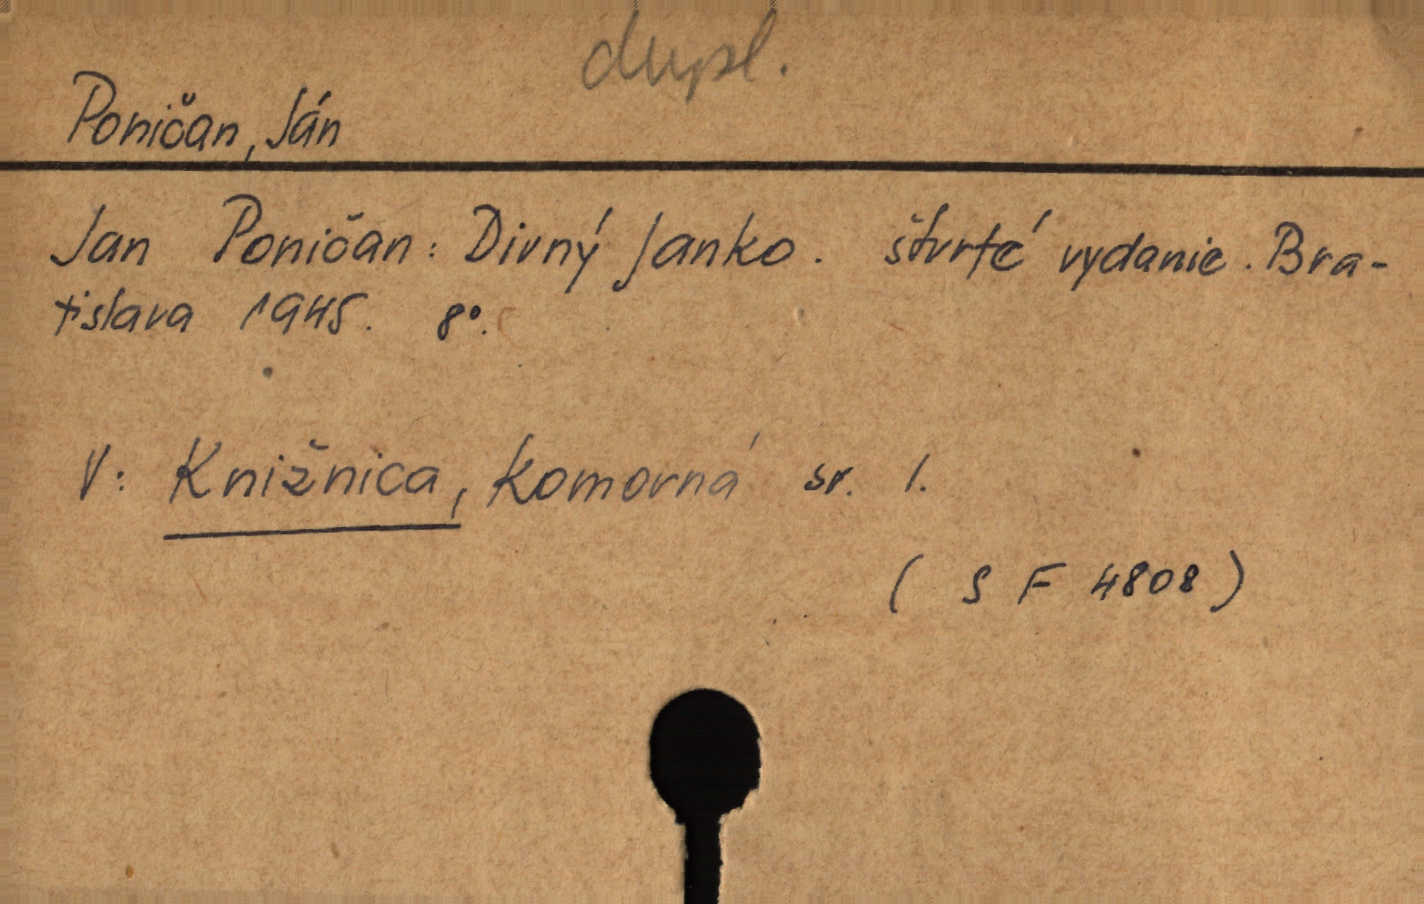 dupl.
Poničan, Ján
Jan Poničan: Divný Janko. štvrté vydanie. Bra-
tislava 1945. 8°.
V: Knižnica, Komorná sv. 1.
( S F 4808 )